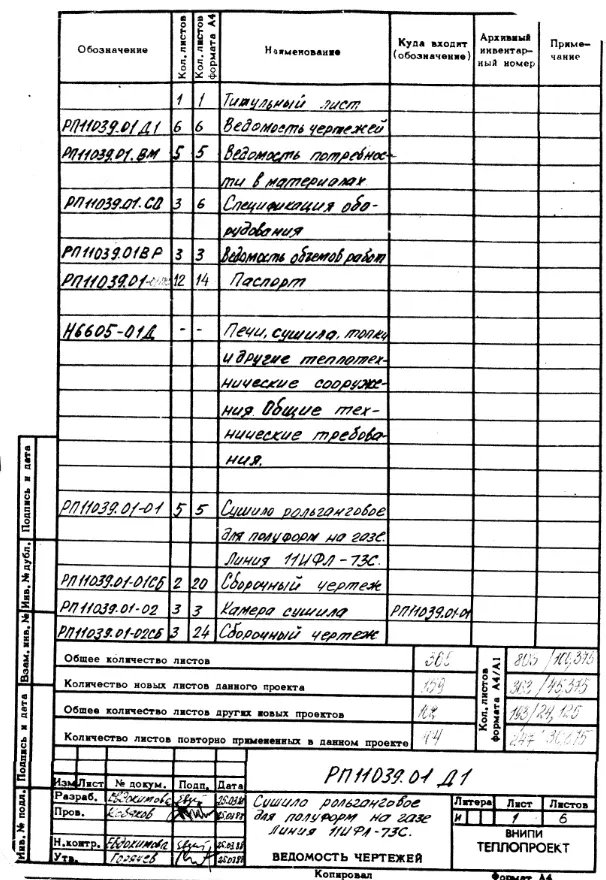 Обозначение Кол. листов Кол. листов формата А4 Наименование Куда входит (обозначение) Архивный инвентарный номер Примечание
1 1 Титульный лист
РП11039.01 Д1 6 6 Ведомость чертежей
РП11039.01.ВМ 5 5 Ведомость потребнос-
ти в материалах
РП11039.01.СО 3 6 Спецификация обо-
рудования
РП11039.01ВР 3 3 Ведомость объемов работ
РП11039.01 12 14 Паспорт
Н6605-01Д - - Печи, сушила, топки
и другие теплотех-
нические сооруже-
ния. Общие тех-
нические требова-
ния.
РП11039.01-01 5 5 Сушило рольганговое
для полуформ на газе.
Линия 11ИФЛ-73С.
РП11039.01-01СБ 2 20 Сборочный чертеж
РП11039.01-02 3 3 Камера сушила РП11039.01-01
РП11039.01-02СБ 3 24 Сборочный чертеж
Общее количество листов 365
Количество новых листов данного проекта 159
Общее количество листов других новых проектов
Количество листов повторно примененных в данном проекте
Кол. листов формата А4/А1
Инв. № подл. Подпись и дата Взам. инв. № Инв. № дубл. Подпись и дата
Изм Лист № докум. Подп. Дата
Разраб. Евдокимова
Пров.
Н.контр. Евдокимова
Утв. Горячев
РП11039.01 Д1
Сушило рольганговое
для полуформ на газе
Линия 11ИФЛ-73С.
ВЕДОМОСТЬ ЧЕРТЕЖЕЙ
Литера Лист Листов
И 1 6
ВНИПИ
ТЕПЛОПРОЕКТ
Копировал Формат А4